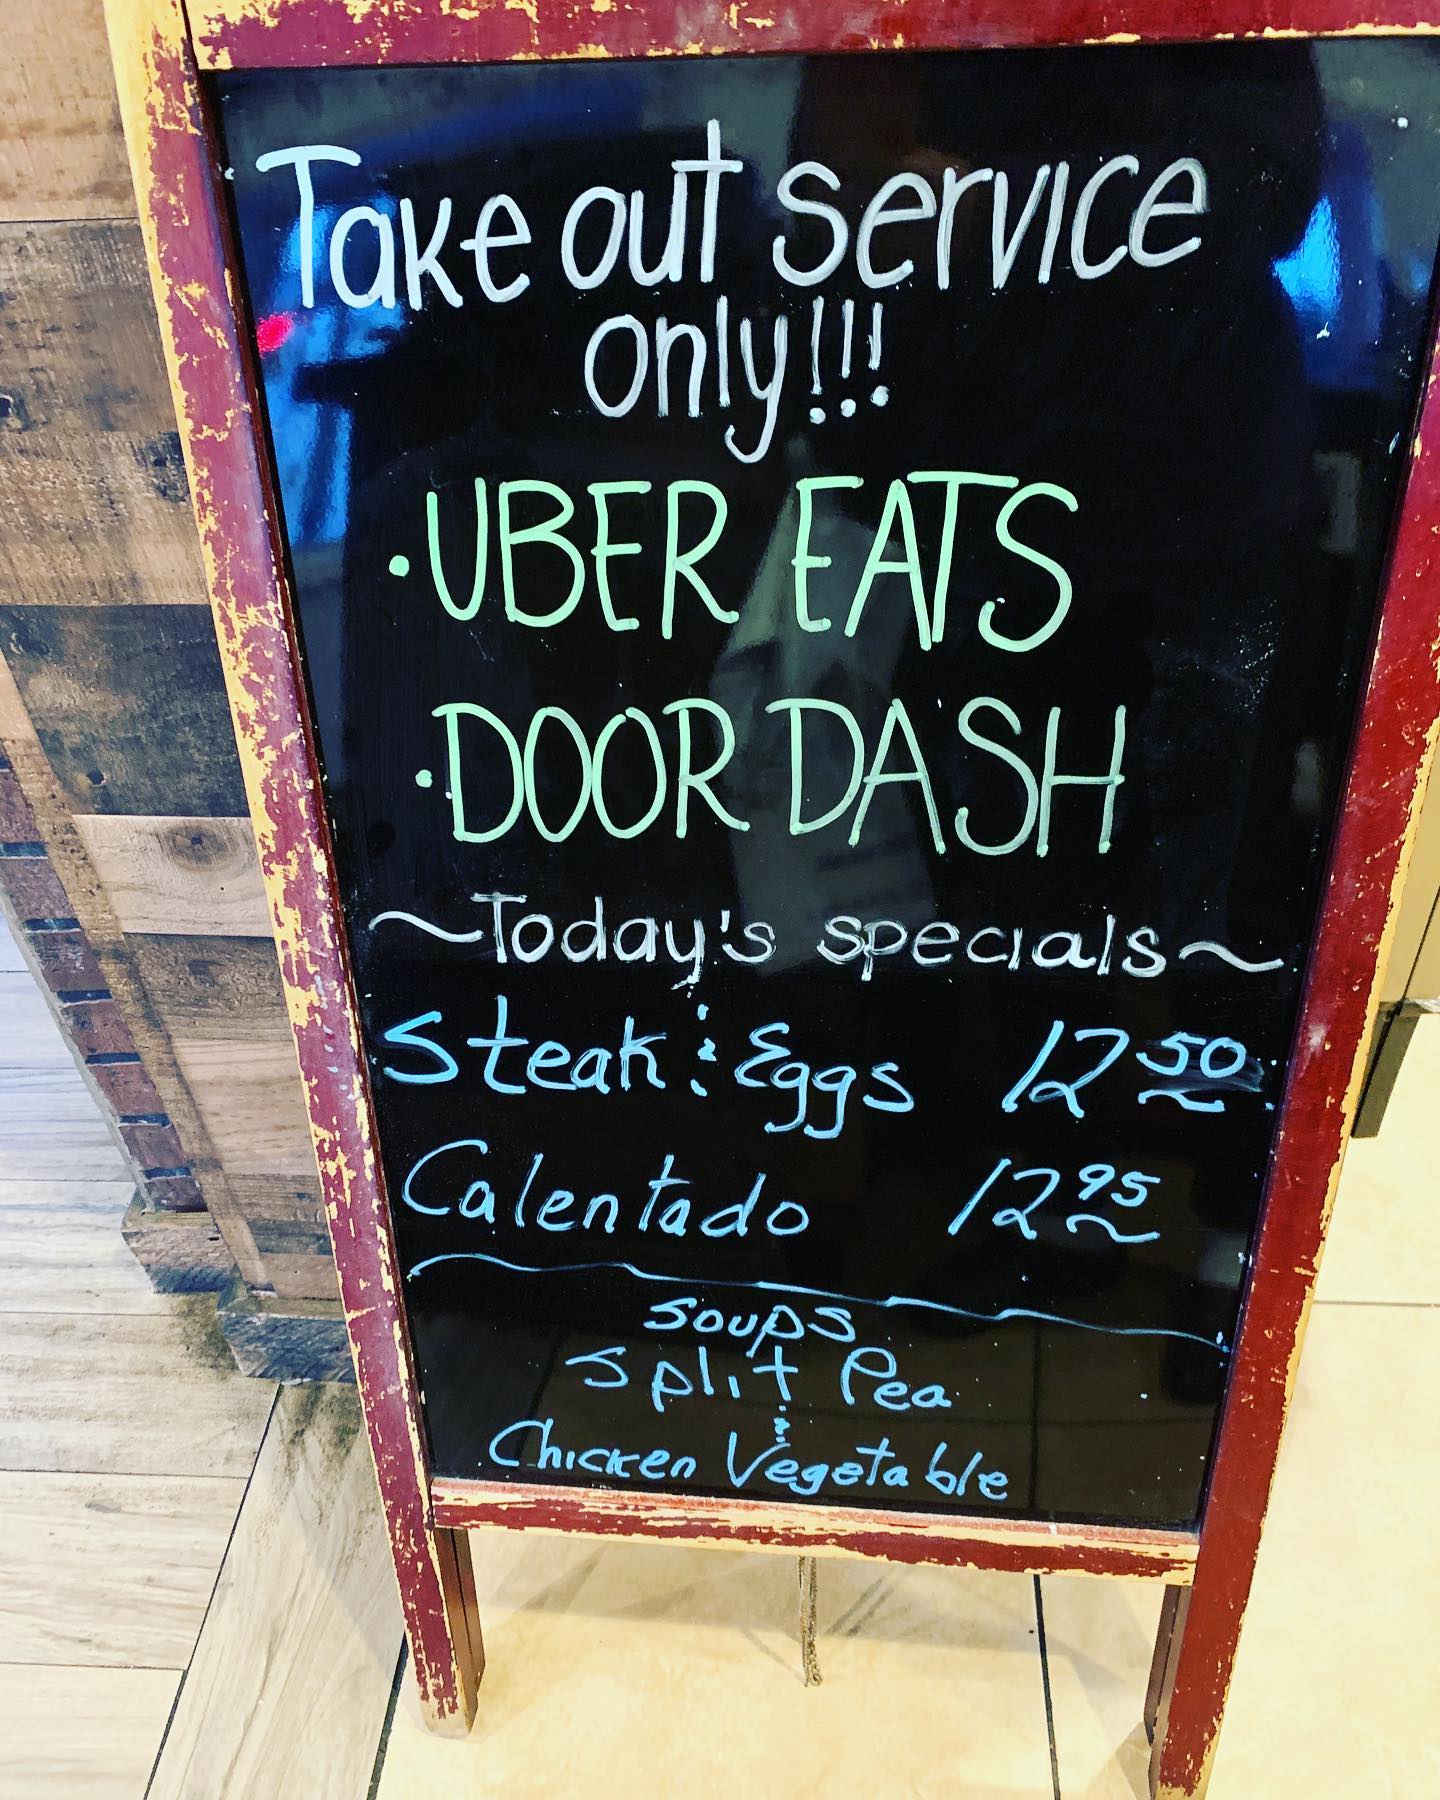 Take out service
only!!!
• UBER EATS
• DOOR DASH
~Today's specials~
Steak & Eggs 12 50
Calentado 12 95
soups
split Pea
&
Chicken Vegetable